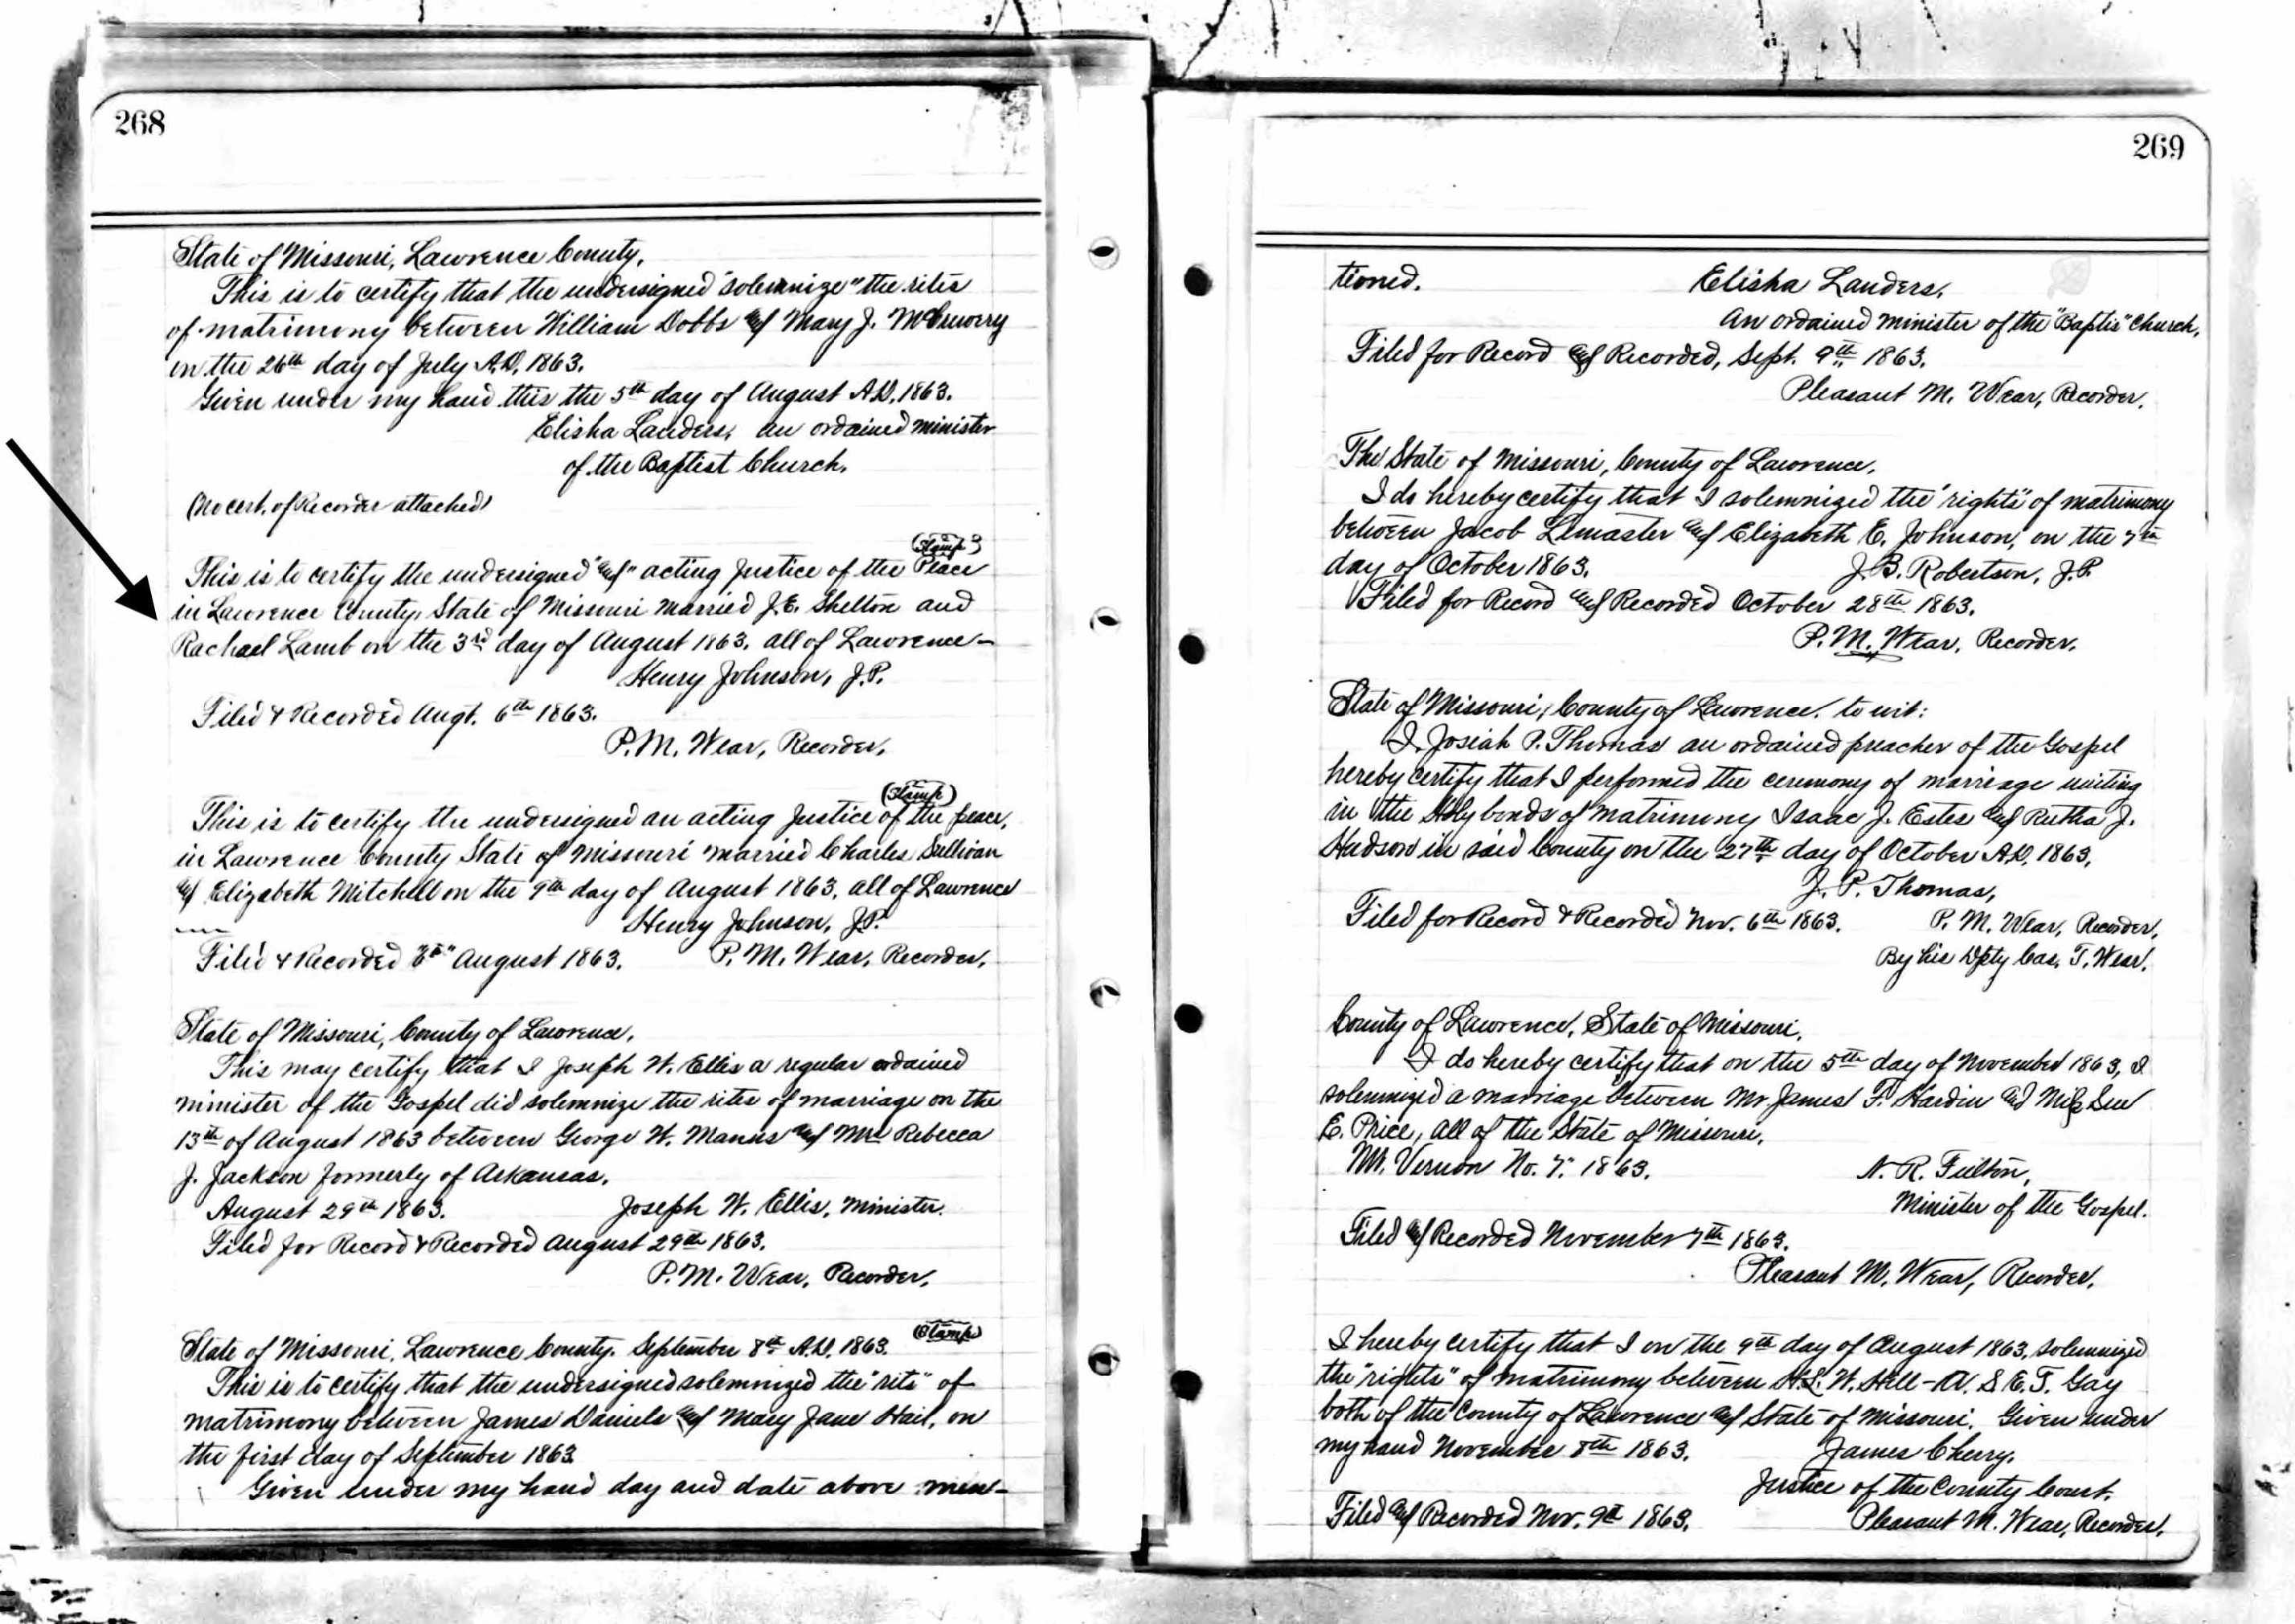 268
State of Missouri, Lawrence County.
This is to certify that the undersigned "solemnize" the rites
of matrimony between William Dobbs and Mary J. McCrewery
on the 26th day of July A.D. 1863.
Given under my hand this the 5th day of August A.D. 1863.
Elisha Landers, an ordained minister
of the Baptist Church.
(No cert. of Recorder attached)
(Stamp)
This is to certify the undersigned "and" acting Justice of the Peace
in Lawrence County, State of Missouri married J.E. Shelton and
Rachael Lamb on the 3rd day of August 1863. all of Lawrence—
Henry Johnson, J.P.
Filed & Recorded Augt. 6th 1863.
P.M. Wear, Recorder.
(Stamp)
This is to certify the undersigned an acting Justice of the peace,
in Lawrence County State of Missouri married Charles Sullivan
and Elizabeth Mitchell on the 9th day of August 1863. all of Lawrence
Henry Johnson, J.P.
Filed & Recorded August 1863. P.M. Wear, Recorder.
State of Missouri, County of Lawrence.
This may certify that I Joseph W. Ellis a regular ordained
minister of the Gospel did solemnize the rites of marriage on the
13th of August 1863 between George W. Manus and Mrs Rebecca
J. Jackson formerly of Arkansas.
August 29th 1863. Joseph W. Ellis, Minister.
Filed for Record & Recorded August 29th 1863.
P.M. Wear, Recorder.
State of Missouri, Lawrence County. September 8th A.D. 1863. (Stamp)
This is to certify that the undersigned solemnized the "rits" of
matrimony between James Daniels and Mary Jane Hail, on
the first day of September 1863.
Given under my hand day and date above men-
269
tioned. Elisha Landers.
An ordained minister of the "Baptis" Church.
Filed for Record and Recorded, Sept. 9th 1863.
Pleasant M. Wear, Recorder.
The State of Missouri, County of Lawrence.
I do hereby certify that I solemnized the "rights" of matrimony
between Jacob Lemaster and Elizabeth E. Johnson, on the 7th
day of October 1863. J.B. Robertson, J.P.
Filed for Record and Recorded October 28th 1863.
P.M. Wear, Recorder.
State of Missouri, County of Lawrence. to wit:
I, Josiah P. Thomas an ordained preacher of the Gospel
hereby certify that I performed the ceremony of marriage uniting
in the Holy bonds of matrimony Isaac J. Estes and Rutha J.
Hudson in said County on the 27th day of October A.D. 1863.
J.P. Thomas,
Filed for Record & Recorded Nov. 6th 1863. P.M. Wear, Recorder.
By his Dpty Cas. T. Wear.
County of Lawrence, State of Missouri.
I do hereby certify that on the 5th day of November 1863, I
solemnized a marriage between Mr James F. Hardin and Miss Sue
E. Price, all of the State of Missouri.
Mt. Vernon No. 7. 1863. N.R. Fulton,
Minister of the Gospel.
Filed and Recorded November 7th 1863.
Pleasant M. Wear, Recorder.
I hereby certify that I on the 9th day of August 1863, solemnized
the "rights" of matrimony between W. Hill S.E.T. Gay
both of the County of Lawrence and State of Missouri. Given under
my hand November 8th 1863. James Cherry.
Justice of the County Court.
Filed and Recorded Nov. 9th 1863. Pleasant M. Wear, Recorder.